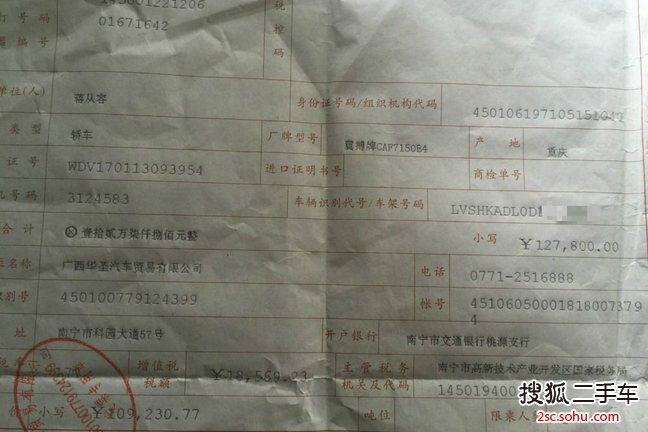 145001221206
灯号码
01671642
器编号
税控码
单位(人)
蒋从容
身份证号码/组织机构代码
类型
轿车
厂牌型号
翼搏牌CAF7150B4
产地
重庆
证号
WDV170113093954
进口证明书号
商检单号
机号码
3124583
车辆识别代号/车架号码
LVSHKADL0D
合计
ⓧ壹拾贰万柒仟捌佰元整
小写
￥127,800.00
名称
广西华圣汽车贸易有限公司
电话
0771-2516888
别号
450100779124399
帐号
451060500018180073794
址
南宁市科园大道57号
开户银行
南宁市交通银行桃源支行
增值税税额
￥18,569.23
主管税务机关及代码
南宁市高新技术产业开发区国家税务局
14501940
价小写
￥109,230.77
吨位
限乘人
搜狐二手车
2sc.sohu.com